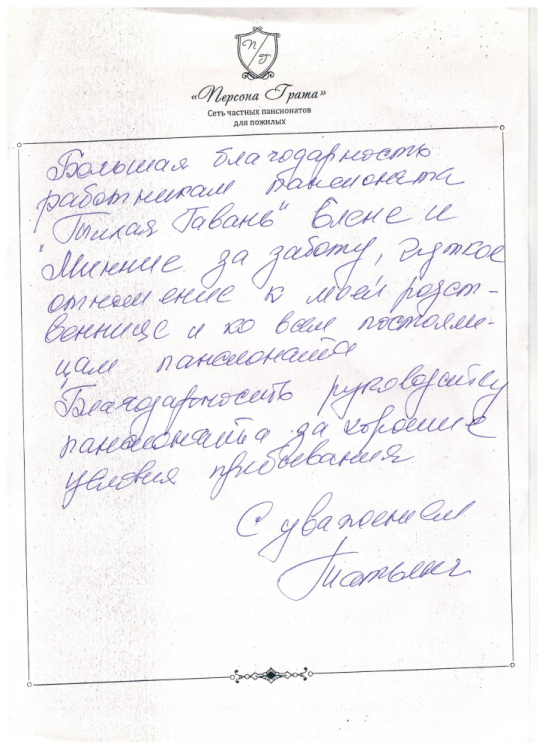 П/Г
«Персона Грата»
Сеть частных пансионатов
для пожилых
Большая благодарность
работникам пансионата
"Тихая Гавань" Елене и
Минние за заботу, чуткое
отношение к моей родст-
веннице и ко всем постояль-
цам пансионата
Благодарность руководству
пансионата за хорошие
условия пребывания
С уважением
Татьяна